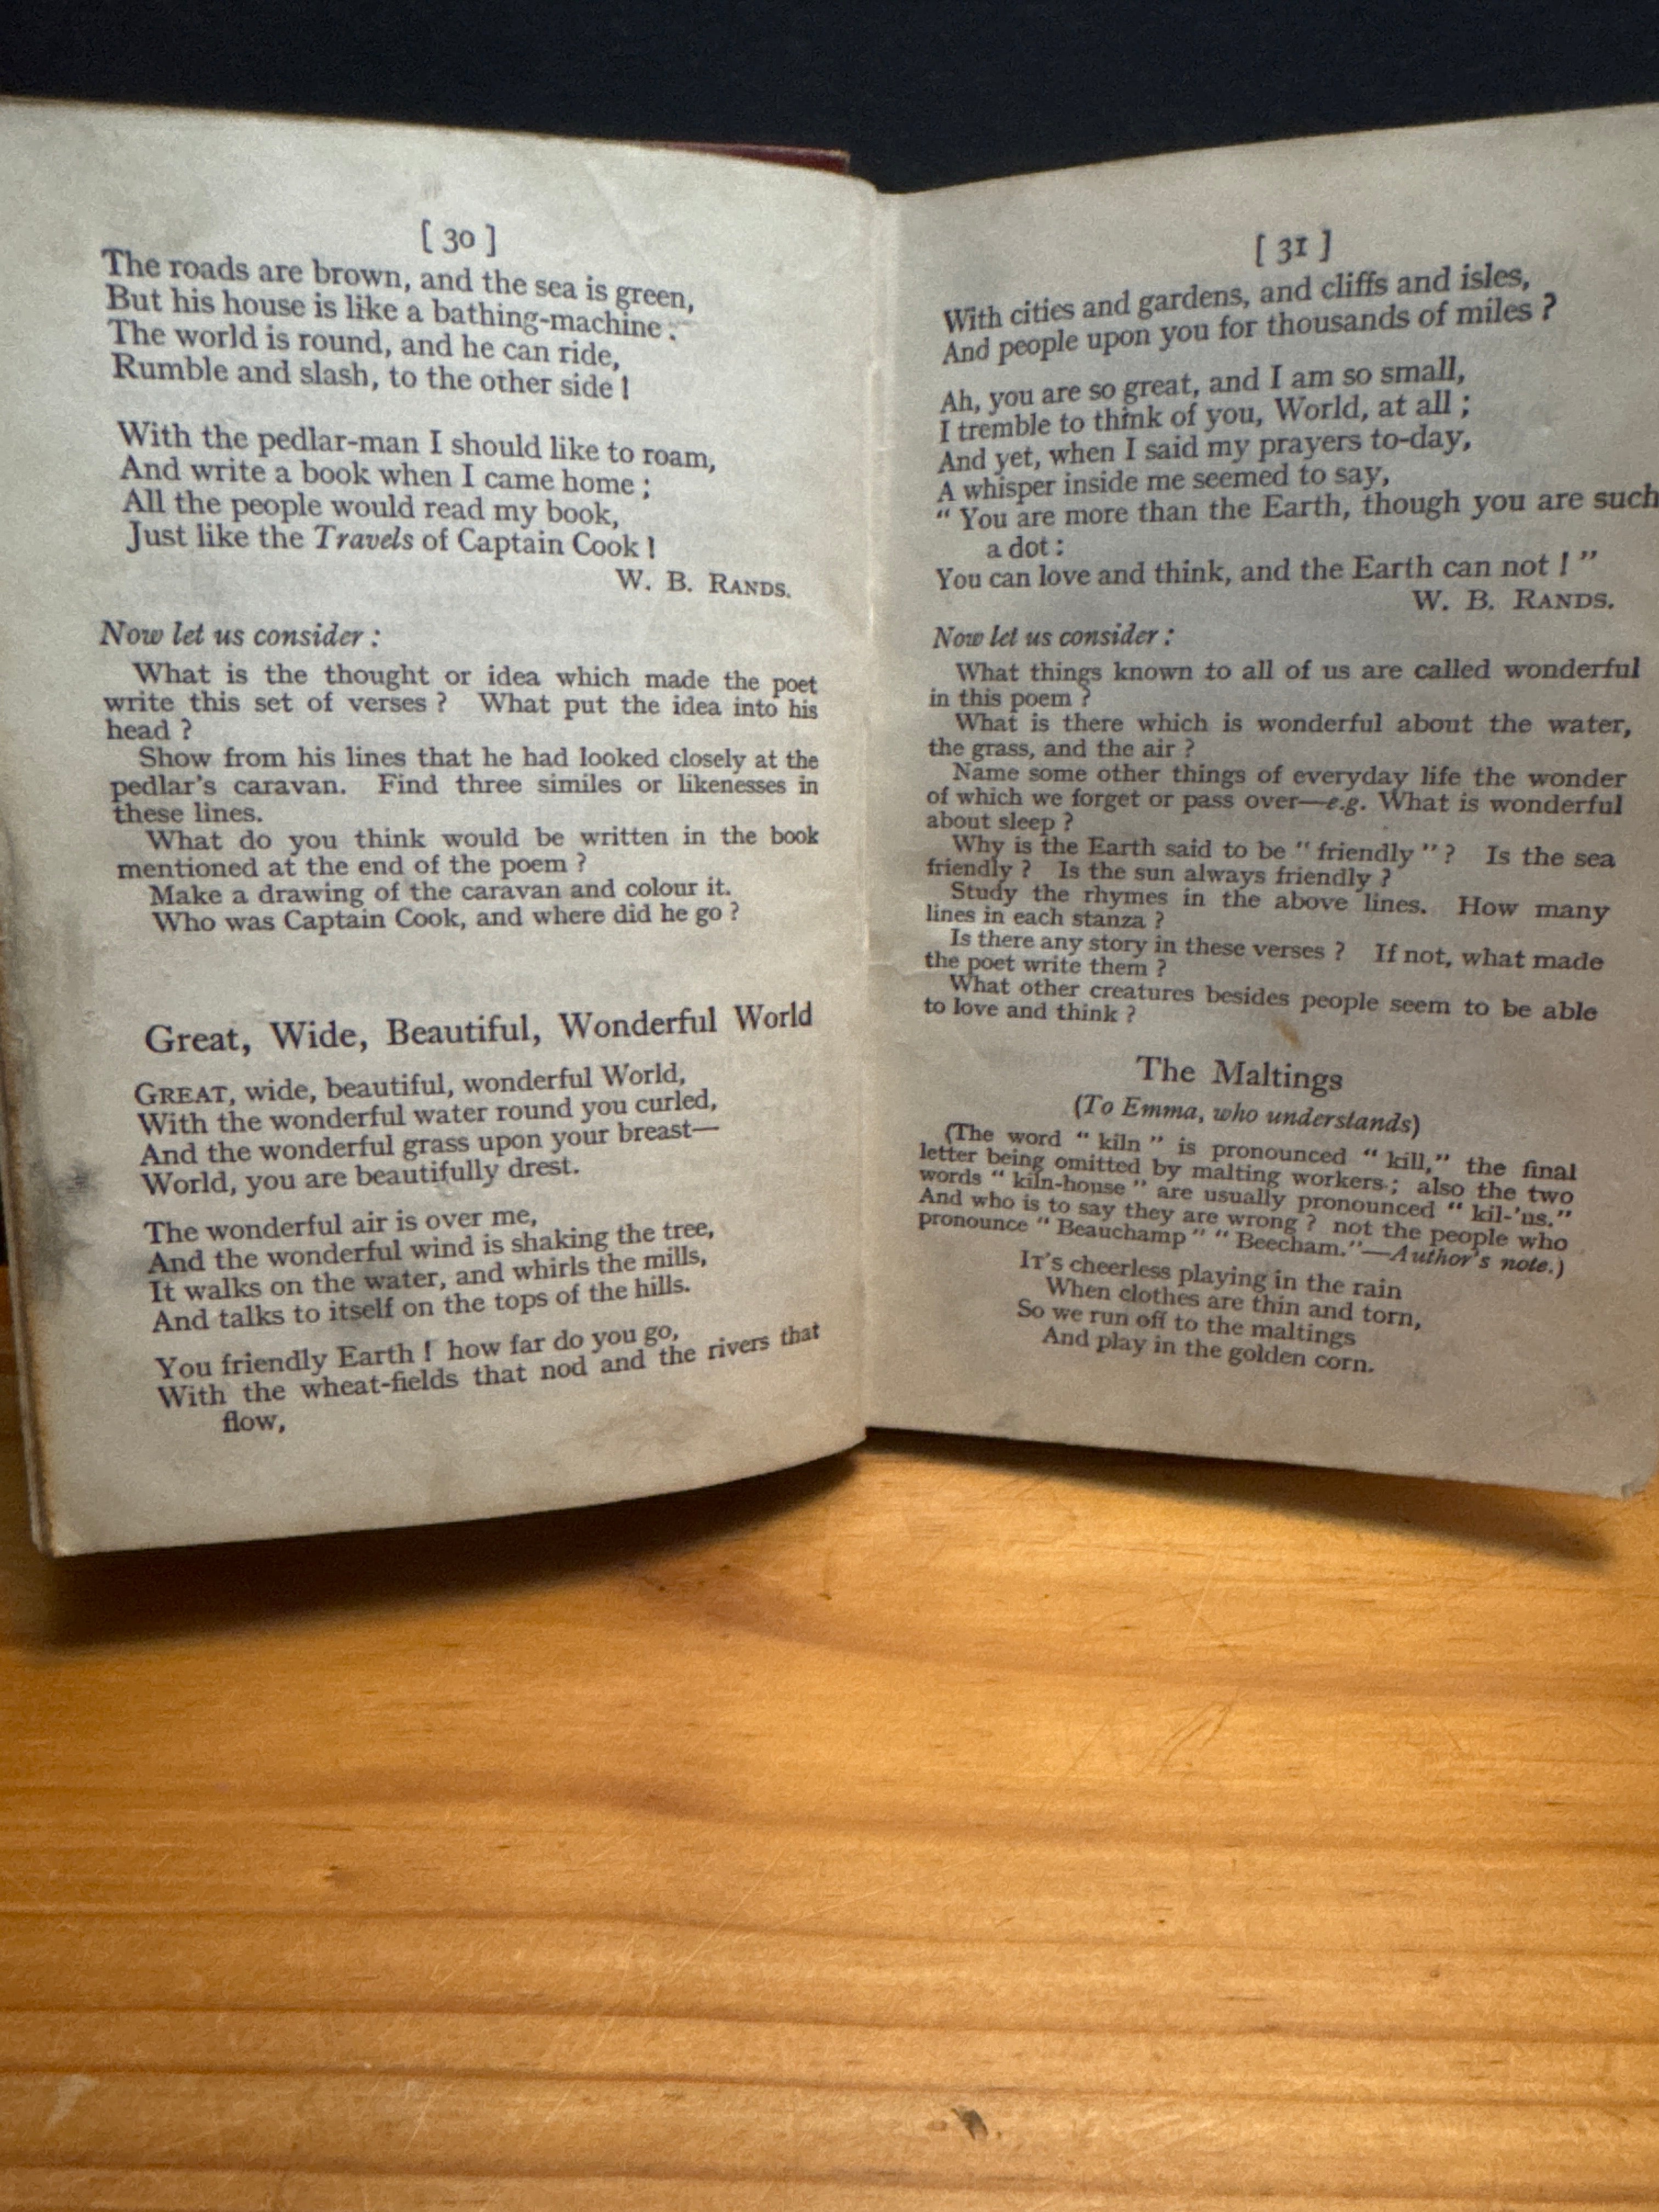 [ 30 ]
The roads are brown, and the sea is green,
But his house is like a bathing-machine ;
The world is round, and he can ride,
Rumble and slash, to the other side !
With the pedlar-man I should like to roam,
And write a book when I came home ;
All the people would read my book,
Just like the Travels of Captain Cook !
W. B. RANDS.
Now let us consider :
What is the thought or idea which made the poet
write this set of verses ? What put the idea into his
head ?
Show from his lines that he had looked closely at the
pedlar's caravan. Find three similes or likenesses in
these lines.
What do you think would be written in the book
mentioned at the end of the poem ?
Make a drawing of the caravan and colour it.
Who was Captain Cook, and where did he go ?
Great, Wide, Beautiful, Wonderful World
GREAT, wide, beautiful, wonderful World,
With the wonderful water round you curled,
And the wonderful grass upon your breast—
World, you are beautifully drest.
The wonderful air is over me,
And the wonderful wind is shaking the tree,
It walks on the water, and whirls the mills,
And talks to itself on the tops of the hills.
You friendly Earth ! how far do you go,
With the wheat-fields that nod and the rivers that
flow,
[ 31 ]
With cities and gardens, and cliffs and isles,
And people upon you for thousands of miles ?
Ah, you are so great, and I am so small,
I tremble to think of you, World, at all ;
And yet, when I said my prayers to-day,
A whisper inside me seemed to say,
“ You are more than the Earth, though you are such
a dot :
You can love and think, and the Earth can not ! ”
W. B. RANDS.
Now let us consider :
What things known to all of us are called wonderful
in this poem ?
What is there which is wonderful about the water,
the grass, and the air ?
Name some other things of everyday life the wonder
of which we forget or pass over—e.g. What is wonderful
about sleep ?
Why is the Earth said to be “ friendly ” ? Is the sea
friendly ? Is the sun always friendly ?
Study the rhymes in the above lines. How many
lines in each stanza ?
Is there any story in these verses ? If not, what made
the poet write them ?
What other creatures besides people seem to be able
to love and think ?
The Maltings
(To Emma, who understands)
(The word “ kiln ” is pronounced “ kill,” the final
letter being omitted by malting workers ; also the two
words “ kiln-house ” are usually pronounced “ kil-'us.”
And who is to say they are wrong ? not the people who
pronounce “ Beauchamp ” “ Beecham.”—Author's note.)
IT's cheerless playing in the rain
When clothes are thin and torn,
So we run off to the maltings
And play in the golden corn.